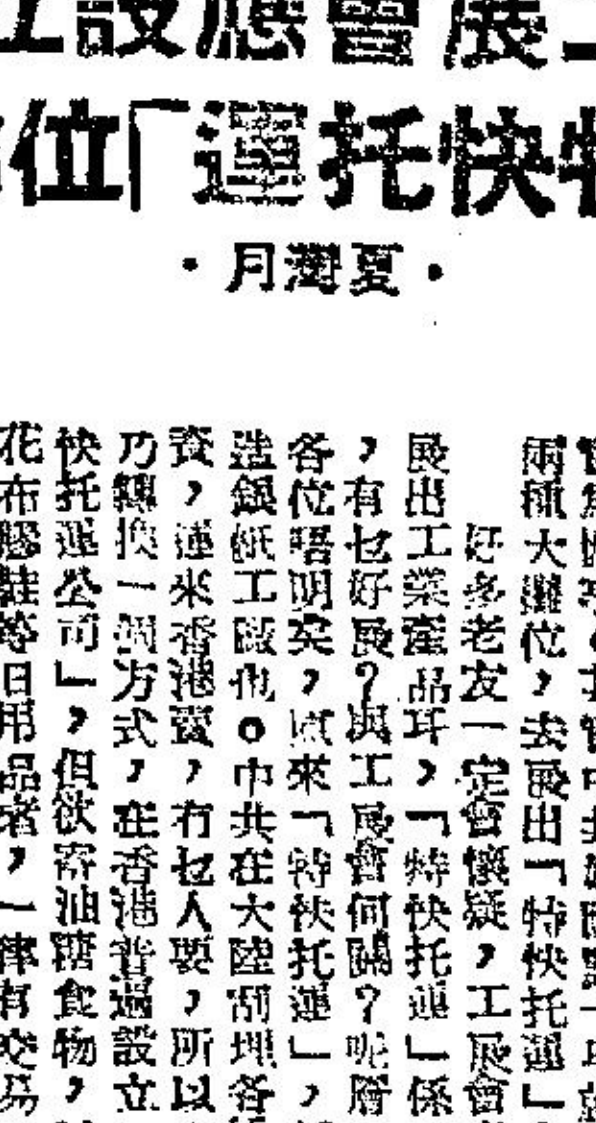 展會應設立
快托運」位
・夏灣月・
兩種大攤位,去展出「特快托運」
好多老友一定會懷疑,工展會
展出工業產品耳,「特快托運」係
,有乜好展?與工展會何關?呢層
各位唔明矣,原來「特快托運」,
造銀紙工廠也。中共在大陸刮埋各
資,運來香港賣,有乜人要,所以
乃轉換一個方式,在香港普遍設立
快托運公司」,但欲寄油糖食物,
花布膠鞋等日用品者,一律有交易